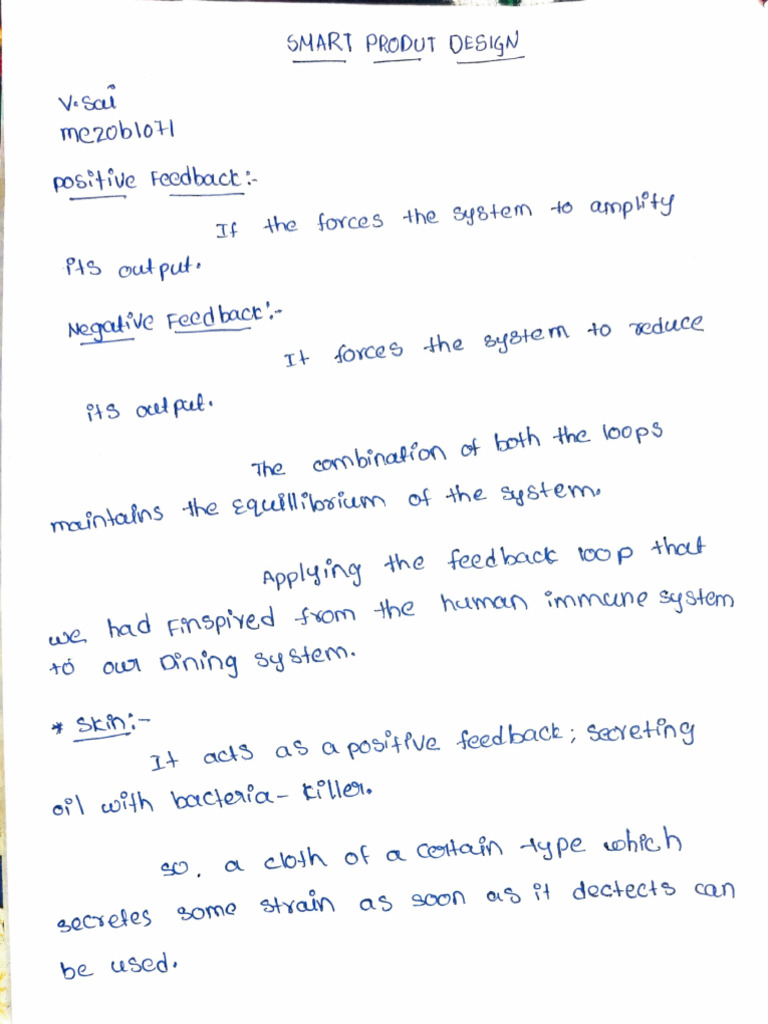 SMART PRODUT DESIGN
V.Sai
me20b1071
Positive Feedback:-
If the forces the system to amplity
its output.
Negative Feedback:-
It forces the system to reduce
its output.
The combination of both the loops
maintains the Equillibrium of the system.
Applying the feedback loop that
we had Finspired from the human immune system
to our Dining system.
* Skin:-
It acts as a positive feedback; secreting
oil with bacteria-killer.
so, a cloth of a certain type which
secretes some strain as soon as it dectects can
be used.